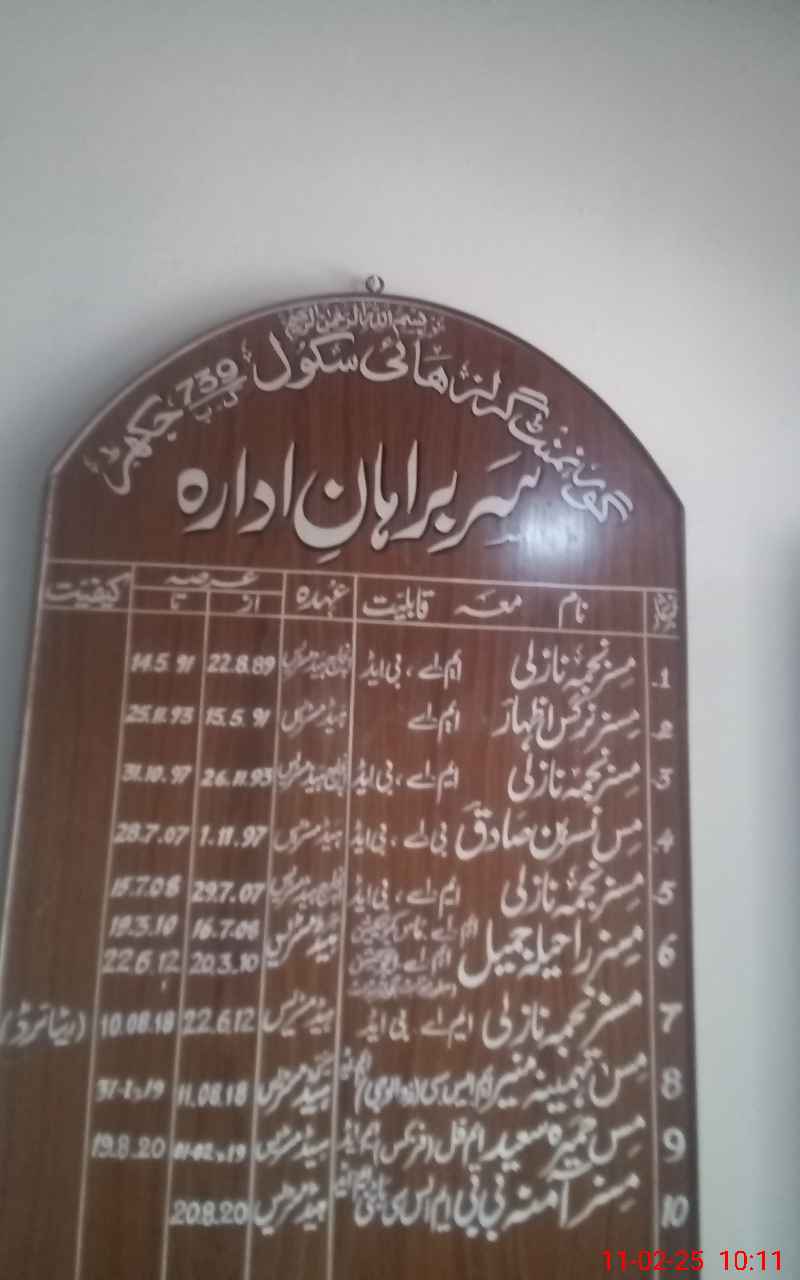 بسم اللہ الرحمن الرحیم
گورنمنٹ گرلز ہائی سکول 739 گ ب جکھڑ
سربراہانِ ادارہ
نام معہ قابلیت عہدہ عرصہ کیفیت
از تا
1. مسز نجمہ نازلی ایم اے ، بی ایڈ انچارج ہیڈمسٹریس 22.8.89 14.5.91
2. مسز نرگس اظہار ایم اے ہیڈمسٹریس 15.5.91 25.11.93
3. مسز نجمہ نازلی ایم اے ، بی ایڈ انچارج ہیڈمسٹریس 26.11.93 31.10.97
4. مس نسرین صادق بی اے ، بی ایڈ ہیڈمسٹریس 1.11.97 28.7.07
5. مسز نجمہ نازلی ایم اے ، بی ایڈ انچارج ہیڈمسٹریس 29.7.07 15.7.08
6 مسز راحیلہ جمیل ایم اے ہیڈمسٹریس 16.7.08 19.3.10
ایم اے 20.3.10 22.6.12
7 مسز نجمہ نازلی ایم اے بی ایڈ ہیڈمسٹریس 22.6.12 10.08.18 (ریٹائرڈ)
8 مس تہمینہ منیر ایم ایس سی (زوالوجی) ہیڈمسٹریس 11.08.18 31-1-19
9 مس حمیرہ سعید ایم فل (فزکس) ایم ایڈ ہیڈمسٹریس 01-02-19 19.8.20
10 مسز آمنہ بی بی ایم ایس سی ہیڈمسٹریس 20.8.20
11-02-25 10:11